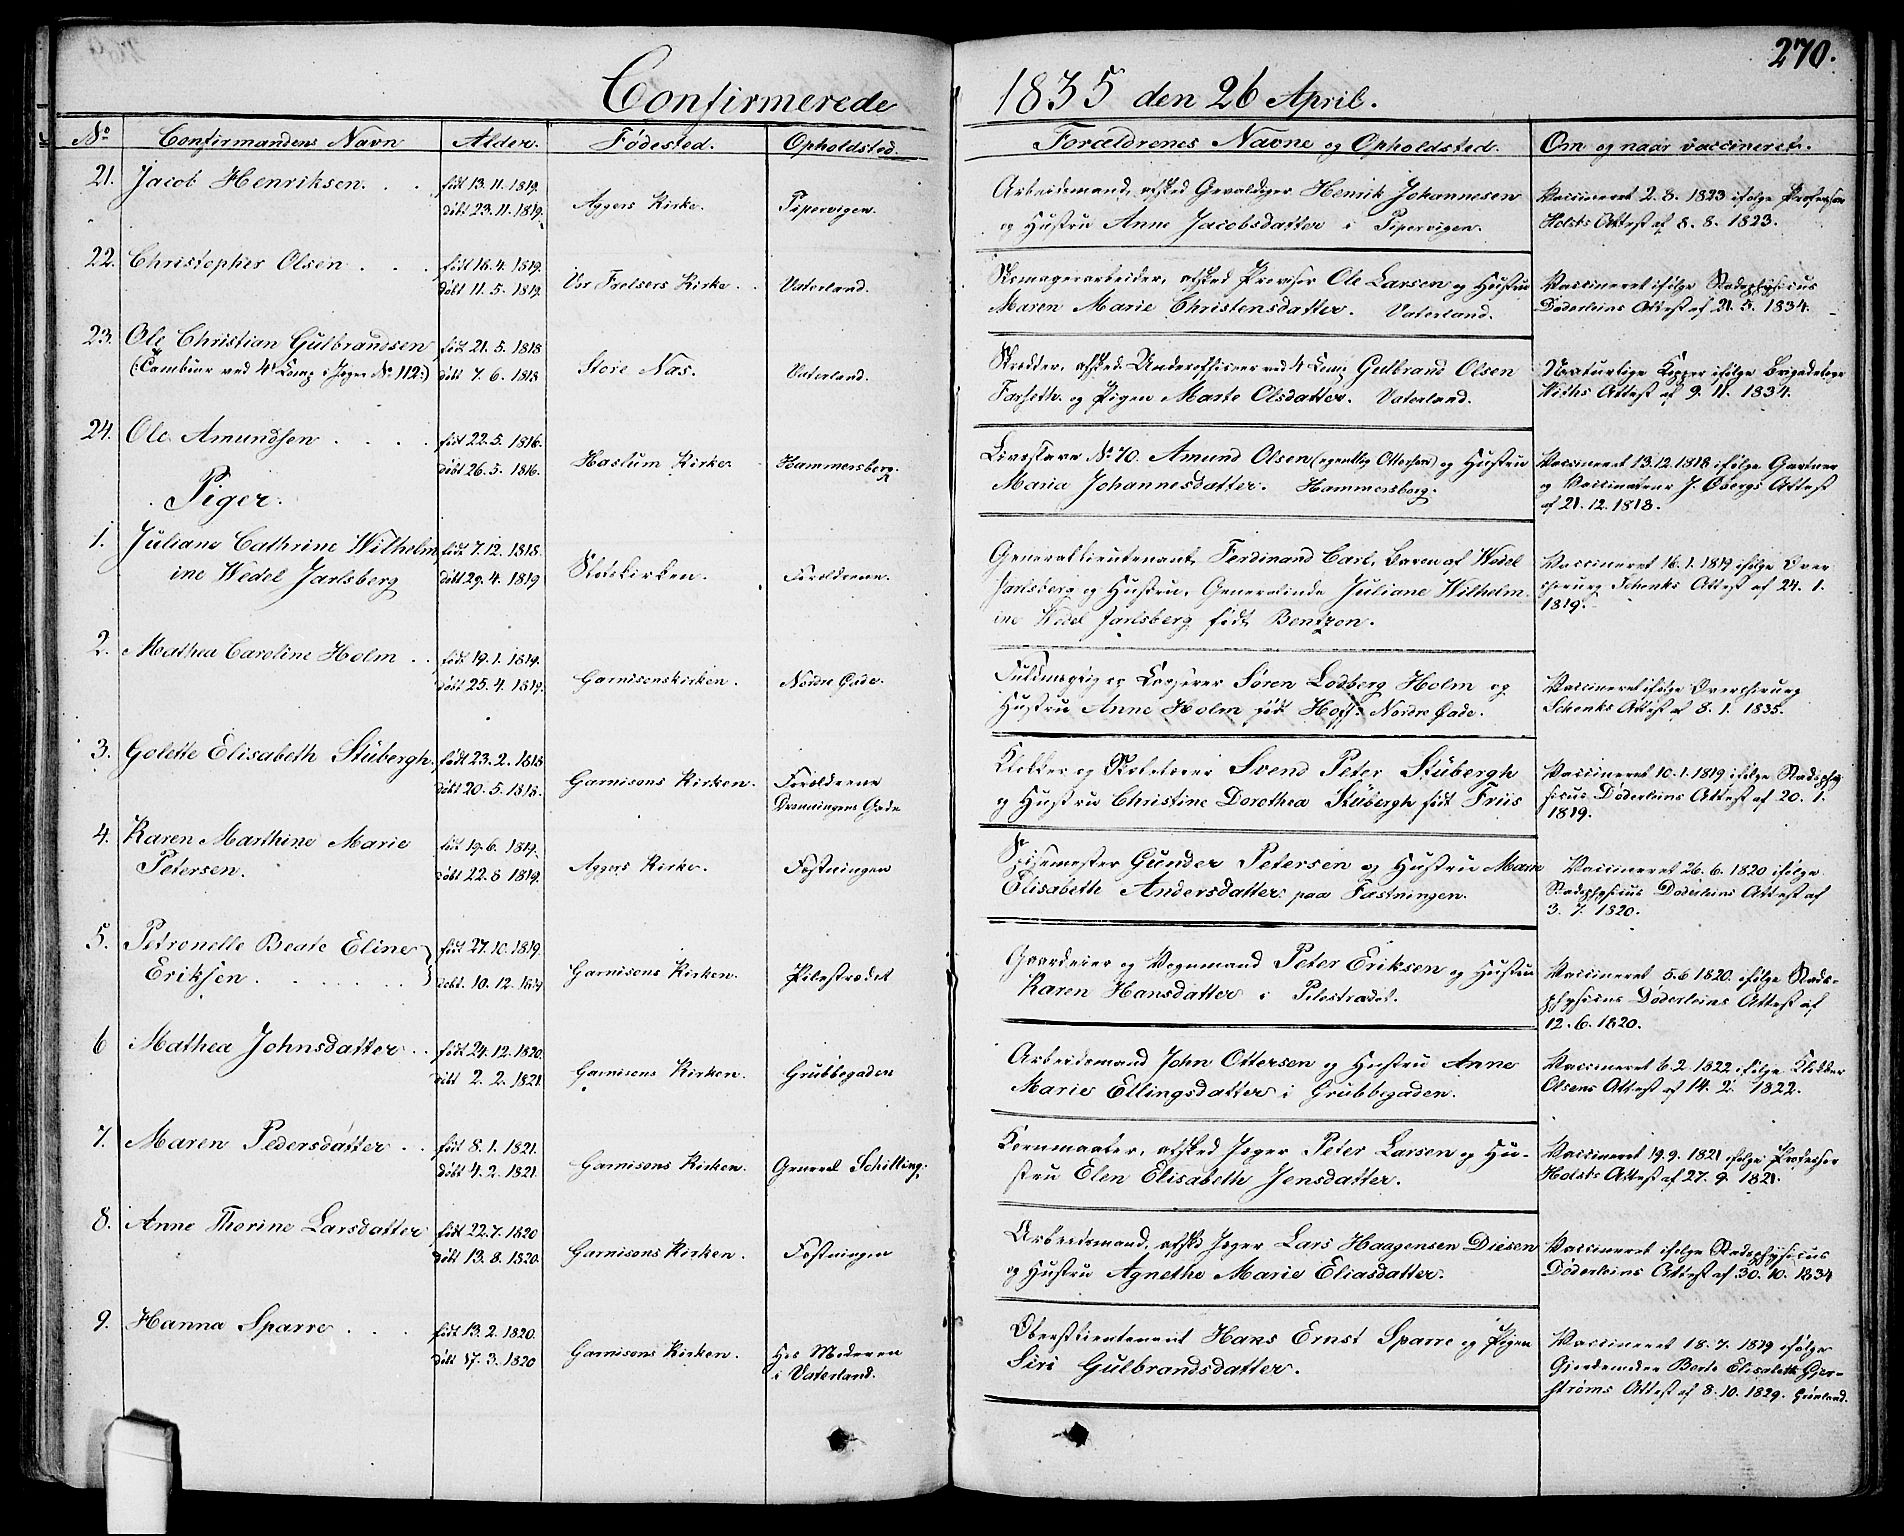 270.
Confirmerede 1835 den 26 April.
No Confirmandens Navn Alder. Fødested. Opholdsted. Forældrenes Navne og Opholdsted. Om og naar vaccineret.
21. Jacob Henriksen. . . født 13. 11. 1819.
døbt 23. 11. 1819. Aggers Kirke. Pipervigen.
Arbeidsmand, afsked Gevaldiger Henrik Johannesen
og Hustru Anne Jacobsdatter i Pipervigen.
Vaccineret 2. 8. 1823 ifølge Professor
Holsts Attest af 8. 8. 1823.
22. Christopher Olsen . . . født 16. 4. 1819.
døbt 11. 5. 1819. Vor Frelsers Kirke. Vaterland.
Skomagerarbeider, afsked Provisor Ole Larsen og Hustru
Maren Marie Christensdatter. Vaterland.
Vaccineret ifølge Stadsphysicus
Døderleins Attest af 21. 5. 1834.
23. Ole Christian Gulbrandsen født 21. 5. 1818
(: Tambour ved 4 Comp: Jæger No. 112:) døbt 7. 6. 1818 Store Næs. Vaterland.
Skrædder, afsked: Underofficeer ved 4 Comp Gulbrand Olsen
og Pigen Marte Olsdatter. Vaterland.
Naturlige Kopper ifølge Brigadelæge
Attest af 9. 11. 1834.
24. Ole Amundsen . . . . født 22. 5. 1816.
døbt 26. 5. 1816. Haslum Kirke. Hammersborg.
No. 70. Amund Olsen (egentlig Ottersen) og Hustru
Maria Johannesdatter. Hammersborg.
Vaccineret 13. 12. 1818 ifølge Gartner
og Vaccinateur J. Øbergs Attest
af 21. 12. 1818.
Piger.
1. Juliane Cathrine Wilhelm født 7. 12. 1818.
ine Wedel Jarlsberg døbt 29. 4. 1819 Slotskirken. Forældrene.
Generallieutenant Ferdinand Carl, Baron af Wedel
Jarlsberg og Hustru, Generalinde Juliane Wilhelm
ine Wedel Jarlsberg født Bentzon.
Vaccineret 16. 1. 1819 ifølge Over
chirurg Schenks Attest af 24. 1.
1819.
2. Mathea Caroline Holm . . født 19. 1. 1819.
døbt 25. 4. 1819. Garnisonskirken. Nordre Gade.
Fuldmægtig og Søren Lodberg Holm og
Hustru Anne Holm født Hoff: Nordre Gade.
Vaccineret ifølge Overchirurg
Schenks Attest af 8. 1. 1835.
3. Golette Elisabeth Stübergh. født 23. 2. 1818
døbt 20. 5. 1818. Garnisons Kirken. Forældrene
Dronningens Gade
Klokker og Skolelærer Svend Peter Stübergh
og Hustru Christine Dorothea Stübergh født Friis
Vaccineret 10. 1. 1819 ifølge Stadsphy
sicus Døderleins Attest af 20. 1.
1819.
4. Karen Marthine Marie født 19. 6. 1819.
Petersen. døbt 22. 8 1819. Aggers Kirke. Fæstningen
Spisemester Gunder Petersen og Hustru Maren
Elisabeth Andersdatter: paa Fæstningen.
Vaccineret 26. 6. 1820 ifølge
Stadsphysicus Døderleins Attest af
3. 7. 1820.
5. Petronelle Beate Eline født 27. 10. 1819.
Eriksen . . . . . . døbt. 10. 12. 1819 Garnisons Kirken. Pilestrædet
Gaardeier og Vognmand Peter Eriksen og Hustru
Karen Hansdatter i Pilestrædet.
Vaccineret 5. 6 1820. ifølge Stads-
physicus Døderleins Attest af
12. 6. 1820.
6 Mathea Johnsdatter . . født 24. 12. 1820.
døbt 2. 2. 1821. Garnisons Kirken. Grübbegaden
Arbeidsmand John Ottersen og Hustru Anne
Marie Ellingsdatter i Grübbegaden.
Vaccineret 6. 2 1822 ifølge Klokker
Olsens Attest af 14. 2. 1822.
7. Maren Pedersdatter . . født 8. 1. 1821.
døbt 4. 2. 1821. Garnisons Kirken. General Schilling;
Kornmaaler, afsked Jæger Peter Larsen og Hu-
stru Elen Elisabeth Jensdatter.
Vaccineret 19. 9. 1821 ifølge Professor
Holsts Attest af 27. 9. 1821.
8. Anne Thorine Larsdatter født 22. 7. 1820
døbt 13. 8. 1820. Garnisons Kirken. Fæstningen
Arbeidsmand, afsked Jæger Lars Haagensen Diesen
og Hustru Agnethe Marie Eliasdatter.
Vaccineret ifølge Stadsphysicus
Døderleins Attest af 30. 10. 1834
9. Hanna Sparre . . . født 13. 2. 1820.
døbt 17. 3. 1820 Garnisons Kirken. Hos Moderen
i Vaterland.
Oberstlieutenant Hans Ernst Sparre og Pigen
Siri Gulbrandsdatter.
Vaccineret 18. 7. 1819 ifølge
Gjordemoder Berte Elisabeth Gjer-
strøms Attest af 8. 10. 1829. Grønland.